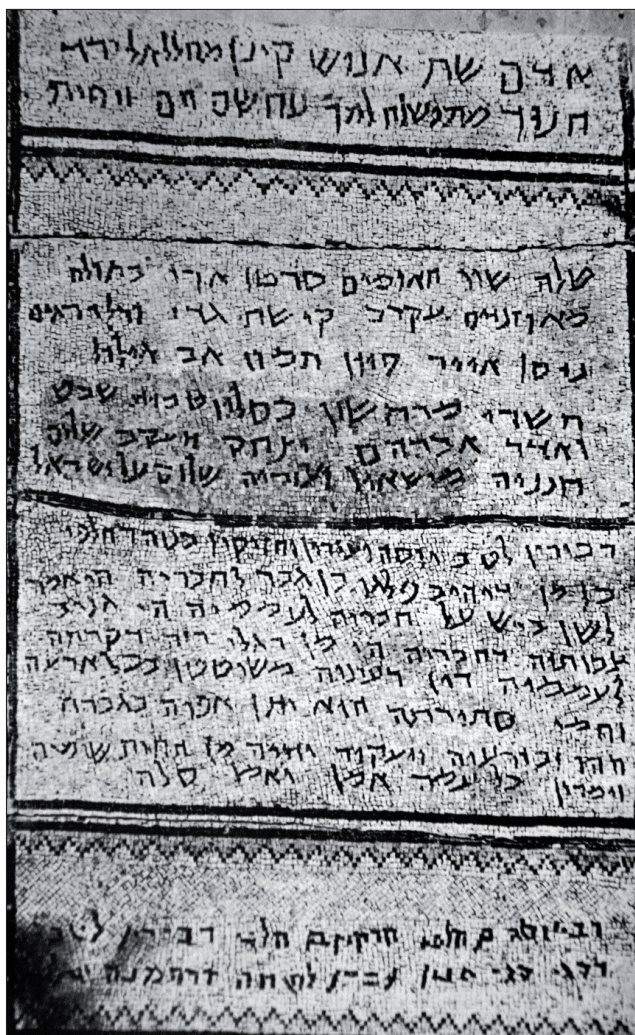 אדם שת אנוש קינן מהללאל ירד
חנוך מתושלח למך נח שם חם ויפת
טלה שור תאומים סרטן ארי בתולה
מאוזניים עקרב קשת גדי ודלי דגים
ניסן אייר סיון תמוז אב אילול
תשרי מרחשון כסליו טבית שבט
ואדר אברהם יצחק ויעקב שלום
חנניה מישאיל ועזריה שלום על ישראל
דכירין לטב יוסה ועזרון וחזיקיו בנוה דחלפי
כל מן דיהיב פלגו בן גבר לחבריה הי אמר
לשן ביש על חבריה לעממיה הי גניב
צבותיה דחבריה הי מן דגלי רזה דקרתה
לעממיה דין דעינוה משוטטן בכל ארעה
וחמי סתירתה הוא יתן אפוה בגברה
ההו ובזרעיה ויעקור יתיה מן תחות שומיה
וימרון כל עמה אמן ואמן סלה
רבי יוסה בן חלפי חזקיו בן חלפי דכירין לטב
סגי סגי הנון עבדו לשמה דרחמנה